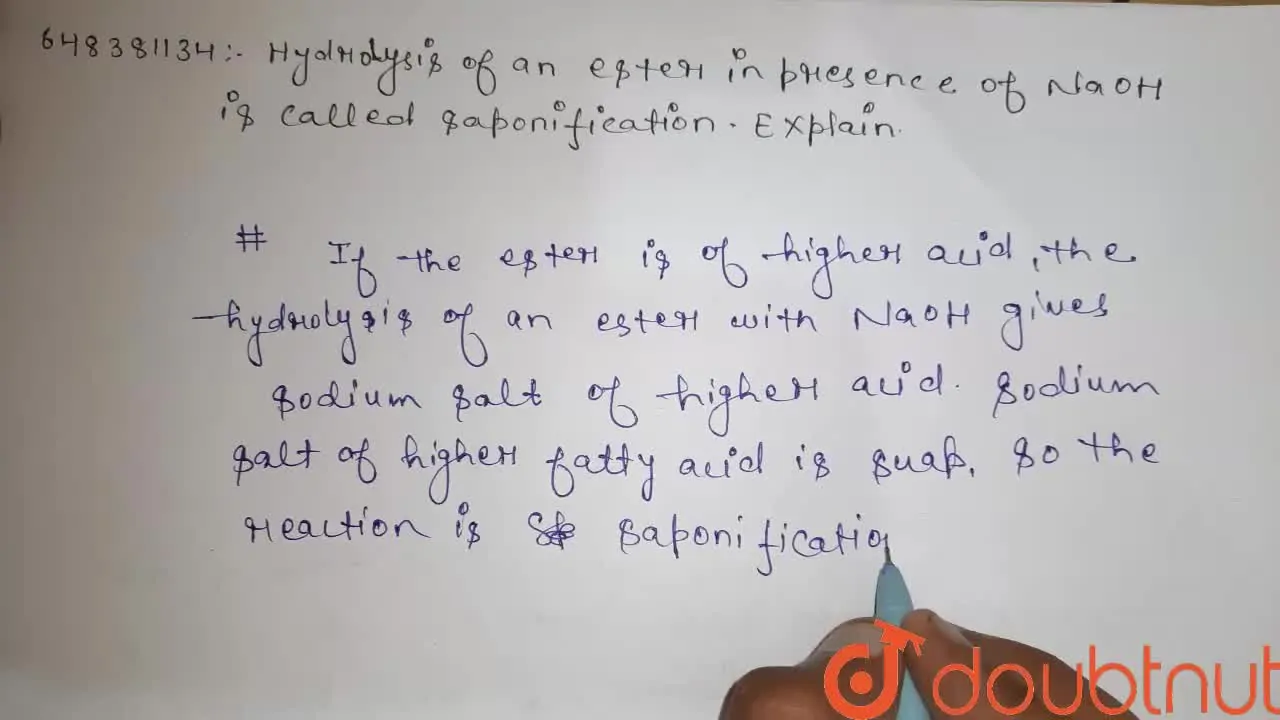 648381134:- Hydrolysis of an ester in presence of NaOH
is called saponification. Explain.
# If the ester is of higher acid, the
hydrolysis of an ester with NaOH gives
sodium salt of higher acid. Sodium
salt of higher fatty acid is suap, so the
reaction is saponification
doubtnut